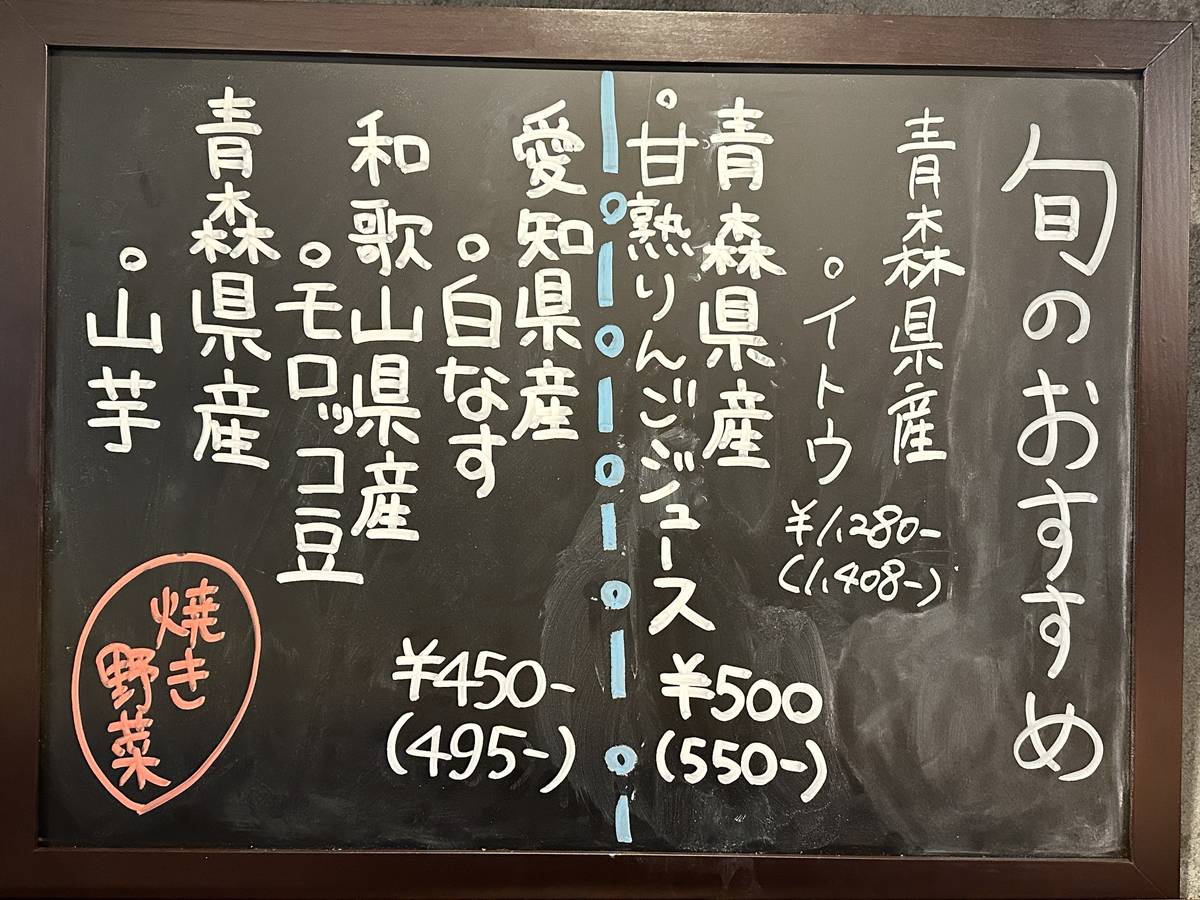 旬のおすすめ
青森県産
○イトウ
¥1,280-
(1,408-)
青森県産
○甘熟りんごジュース
¥500
(550-)
愛知県産
○白なす
和歌山県産
○モロッコ豆
青森県産
○山芋
¥450-
(495-)
焼き
野菜